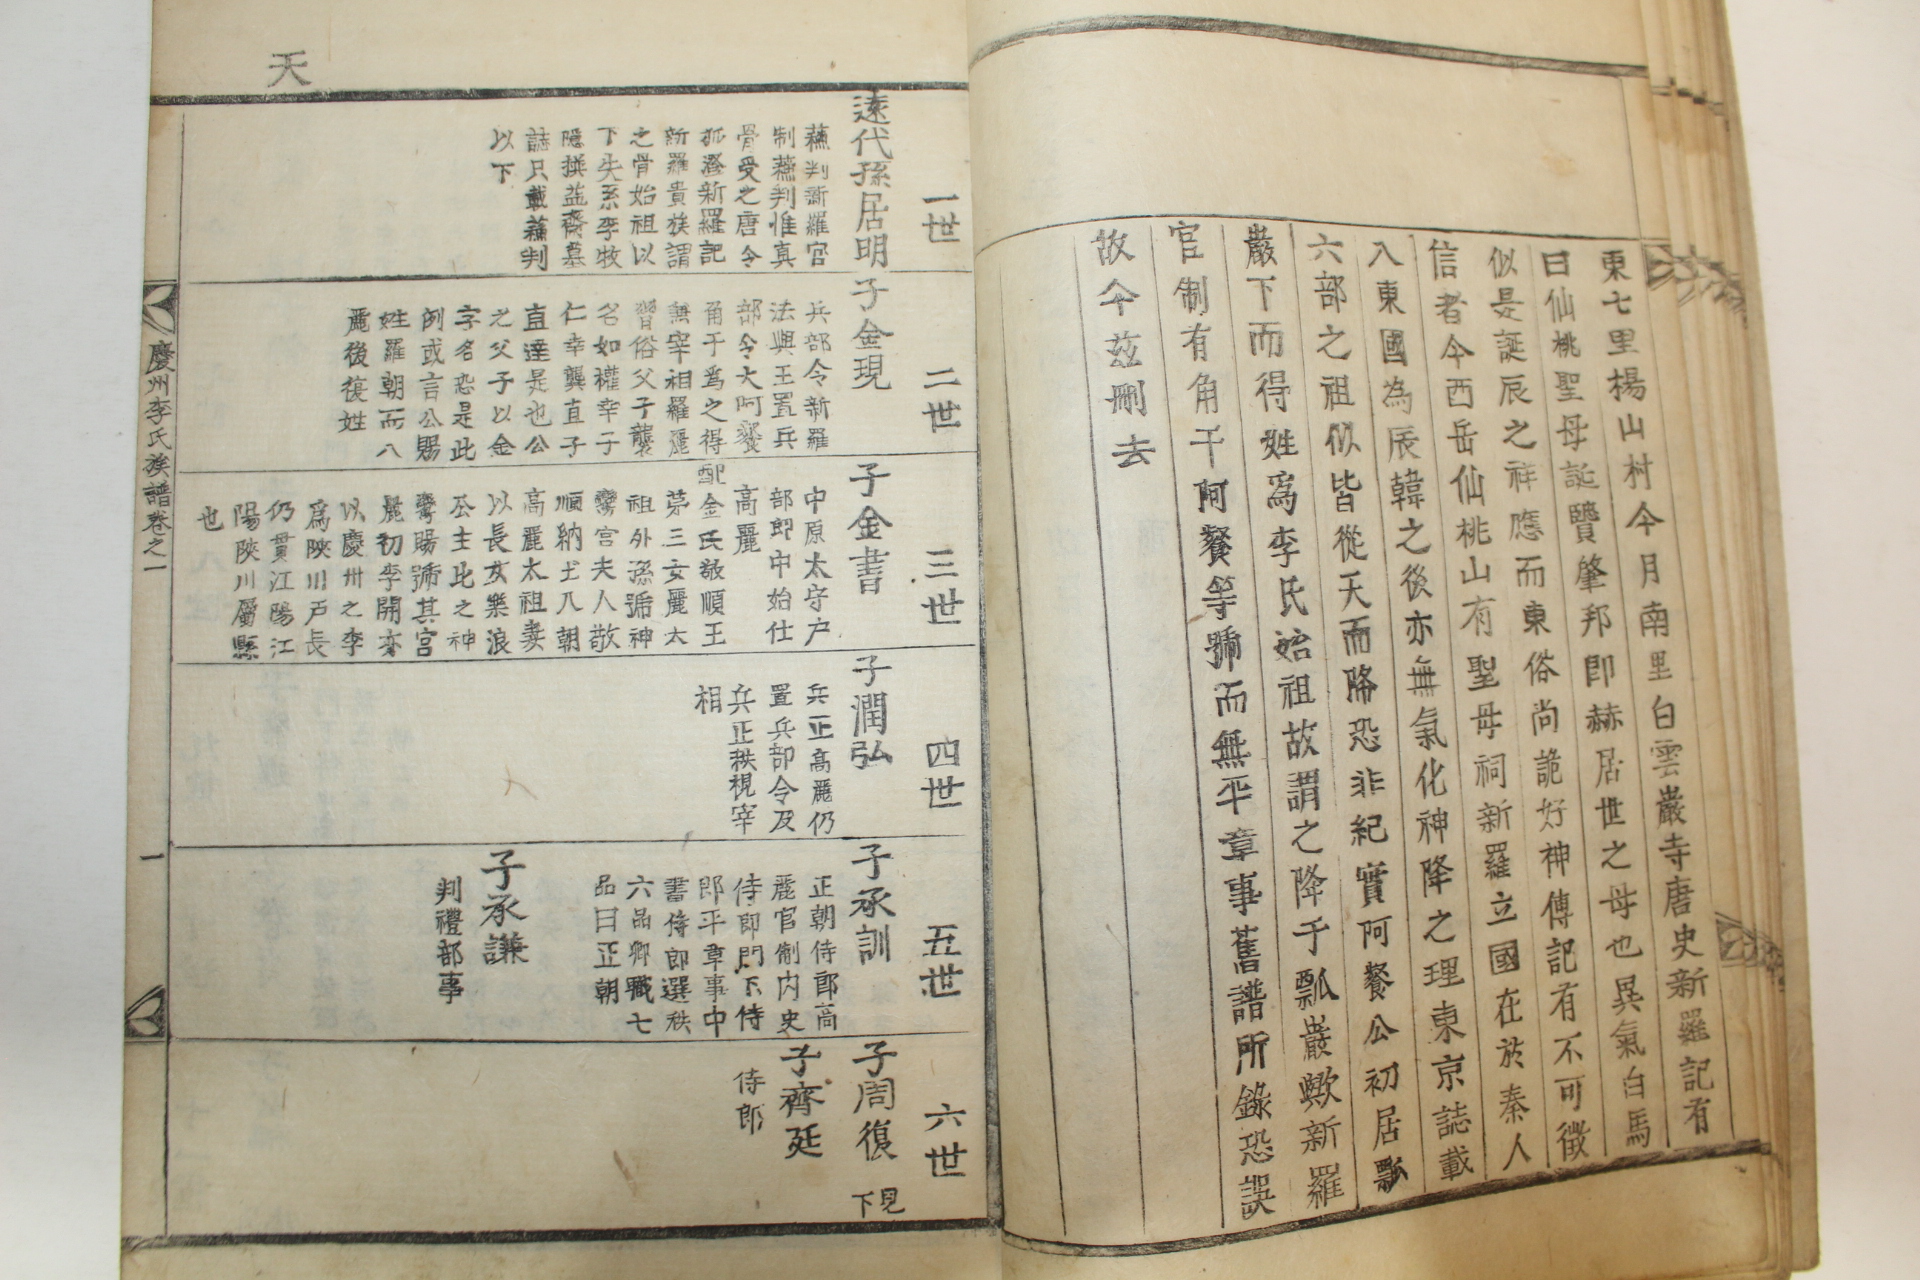 東七里楊山村今月南里白雲巖寺唐史新羅記有
曰仙桃聖母誕贒肇邦即赫居世之母也異氣白馬
似是誕辰之祥應而東俗尚詭好神傳記有不可徵
信者今西岳仙桃山有聖母祠新羅立國在於秦人
入東國為辰韓之後亦無氣化神降之理東京誌載
六部之祖似皆從天而降恐非紀實阿餐公初居瓢
巖下而得姓爲李氏始祖故謂之降于瓢巖歟新羅
官制有角干阿餐等號而無平章事舊譜所錄恐誤
故今玆刪去
天
一世
遠代孫居明
蘓判新羅官
制蘓判惟真
骨受之唐令
狐澄新羅記
新羅貴族謂
之骨始祖以
下失系李牧
隱撰益齋墓
誌只載蘓判
以下
二世
子金現
兵部令新羅
法興王置兵
部令大阿餐
角干爲之得
無宰相羅麗
習俗父子襲
名如權幸子
仁幸龔直子
直達是也公
之父子以金
字名恐是此
例或言公賜
姓羅朝而八
麗後復姓
三世
子金書
中原太守户
部郎中始仕
高麗
配金氏敬順王
苐三女麗太
祖外孫號神
鸞宮夫人敬
順納土入朝
高麗太祖妻
以長女樂浪
公主此之神
鸞賜號其宮
麗初李開
以慶州之李
爲陜川戸長
仍貫江陽江
陽陜川屬縣
也
四世
子潤弘
兵正高麗仍
置兵部令及
兵正秩視宰
相
五世
子承訓
正朝侍郎高
麗官制内史
侍郎門下侍
郎平章事中
書侍郎選秩
六品卿職七
品曰正朝
子承謙
判禮部事
六世
子周復
見下
子齊廷
侍郎
慶州李氏族譜卷之一
一